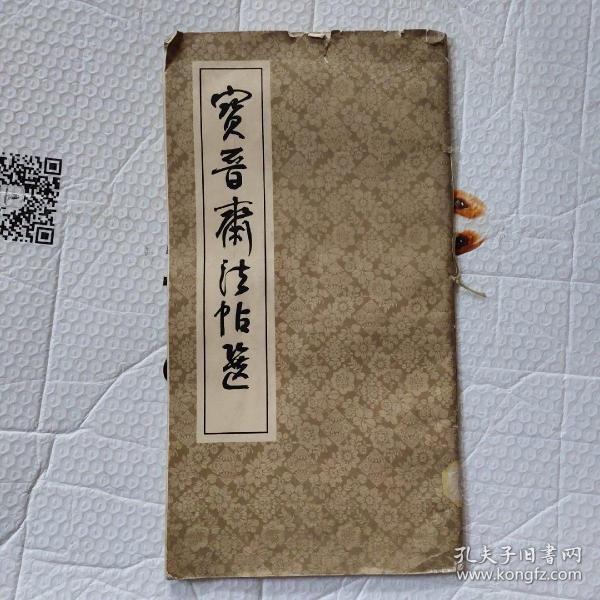 寶晉齋法帖選
孔夫子旧書网
www.kongfz.com